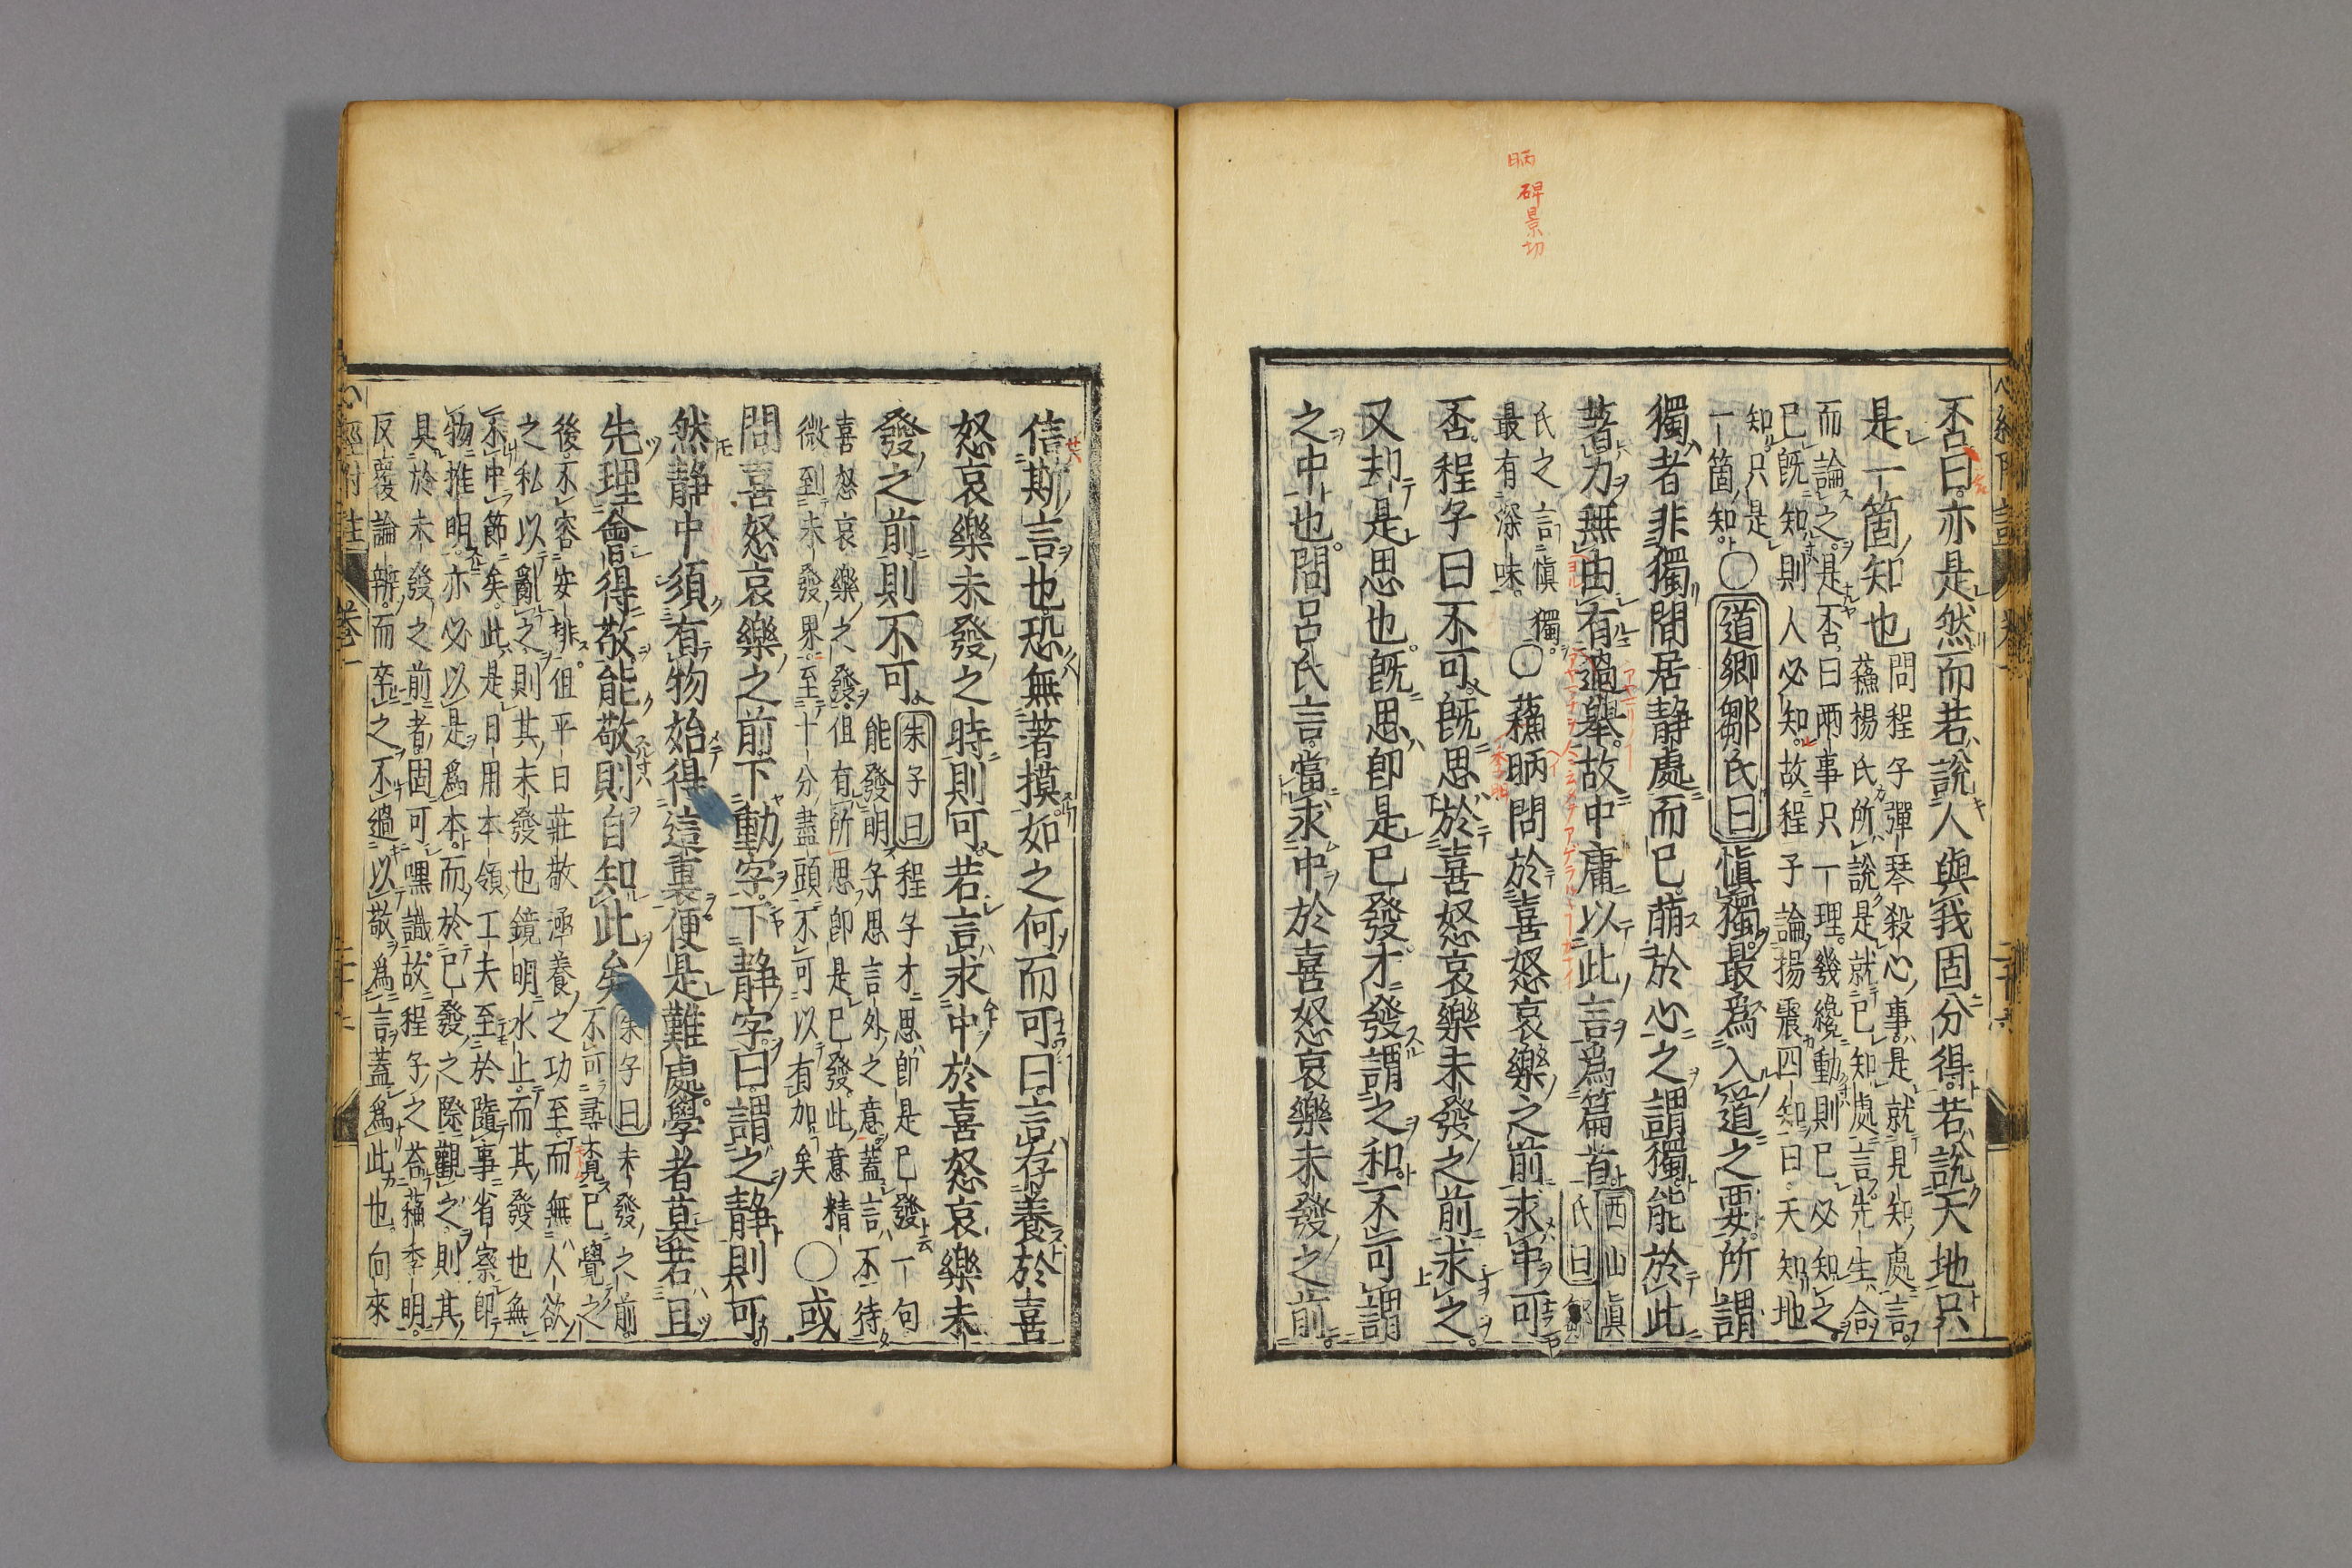 晒 碑景切
否曰亦是然而若說人與我固分得若說天地只
是一箇知也
問程子彈琴殺心事是就見知處言
蘇楊氏所說是就己知處言先生合
而論之是否曰兩事只一理幾纔動則己必知之
己旣知則人必知故程子論揚震四知曰天知地
知只是
一箇知
〇道鄕鄒氏曰愼獨最爲入道之要所謂
獨者非獨閒居靜處而已萌於心之謂獨能於此
著力無由有過擧故中庸以此言爲篇首
西山眞
氏曰鄒
氏之言愼獨
最有深味
〇蘇昞問於喜怒哀樂之前求中可
否程子曰不可旣思於喜怒哀樂未發之前求之
又却是思也旣思卽是已發才發謂之和不可謂
之中也問呂氏言當求中於喜怒哀樂未發之前
信斯言也恐無著摸如之何而可曰言存養於喜
怒哀樂未發之時則可若言求中於喜怒哀樂未
發之前則不可
朱子曰程子才思卽是已發一句
能發明子思言外之意蓋言不待
喜怒哀樂之發但有所思卽是已發此意精
微到未發界至十分盡頭不可以有加矣
〇或
問喜怒哀樂之前下動字下靜字曰謂之靜則可
然靜中須有物始得這裏便是難處學者莫若且
先理會得敬能敬則自知此矣
朱子曰未發之前
不可尋覓已覺之
後不容安排但平日莊敬涵養之功至而無人欲
之私以亂之則其未發也鏡明水止而其發也無
不中節矣此是日用本領工夫至於隨事省察卽
物推明亦必以是爲本而於已發之際觀之則其
具於未發之前者固可嘿識故程子之荅蘇季明
反覆論辨而卒之不過以敬爲言蓋爲此也向來
心經附註 卷一